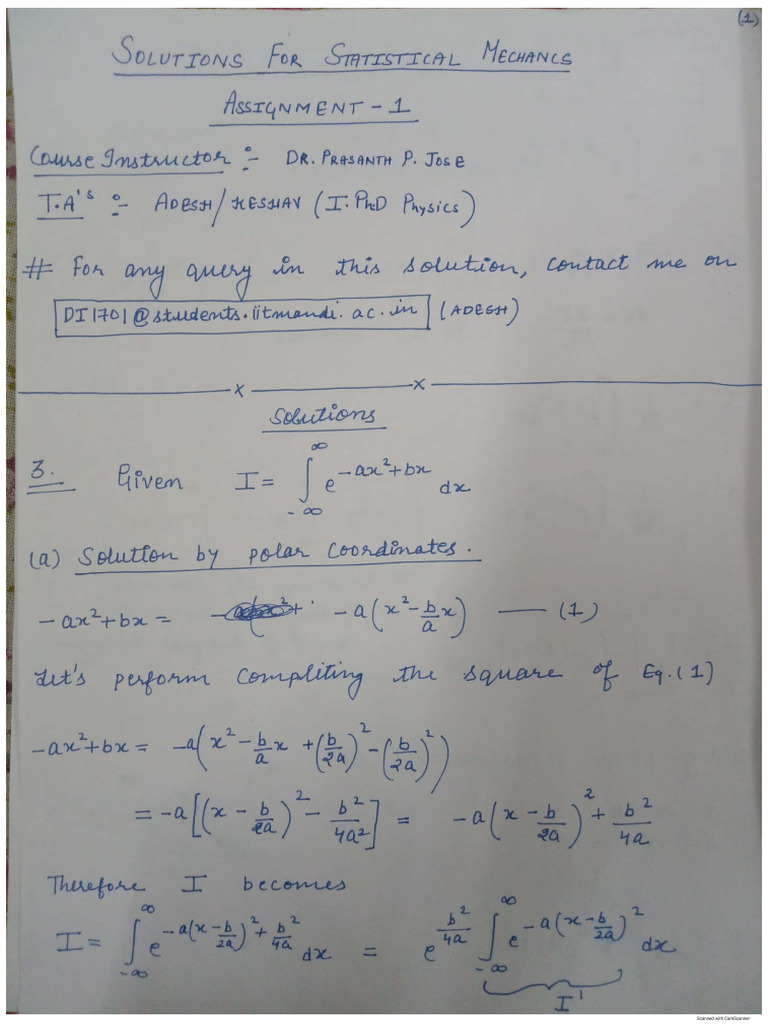 (1)
SOLUTIONS FOR STATISTICAL MECHANCS
ASSIGNMENT - 1
Course Instructor :- DR. PRASANTH P. JOSE
T.A's :- ADESH/KESHAV (I. PhD Physics)
# For any query in this solution, contact me on
DI1701@students.iitmandi.ac.in (ADESH)
x x
Solutions
3. Given I = ∫_{-∞}^{∞} e^{-ax²+bx} dx
(a) Solution by polar coordinates.
-ax²+bx = -a(x² - b/a x) —— (1)
Let's perform compliting the square of Eq.(1)
-ax²+bx = -a(x² - b/a x + (b/2a)² - (b/2a)²)
= -a[(x - b/2a)² - b²/4a²] = -a(x - b/2a)² + b²/4a
Therefore I becomes
I = ∫_{-∞}^{∞} e^{-a(x-b/2a)² + b²/4a} dx = e^{b²/4a} ∫_{-∞}^{∞} e^{-a(x-b/2a)²} dx
I'
Scanned with CamScanner